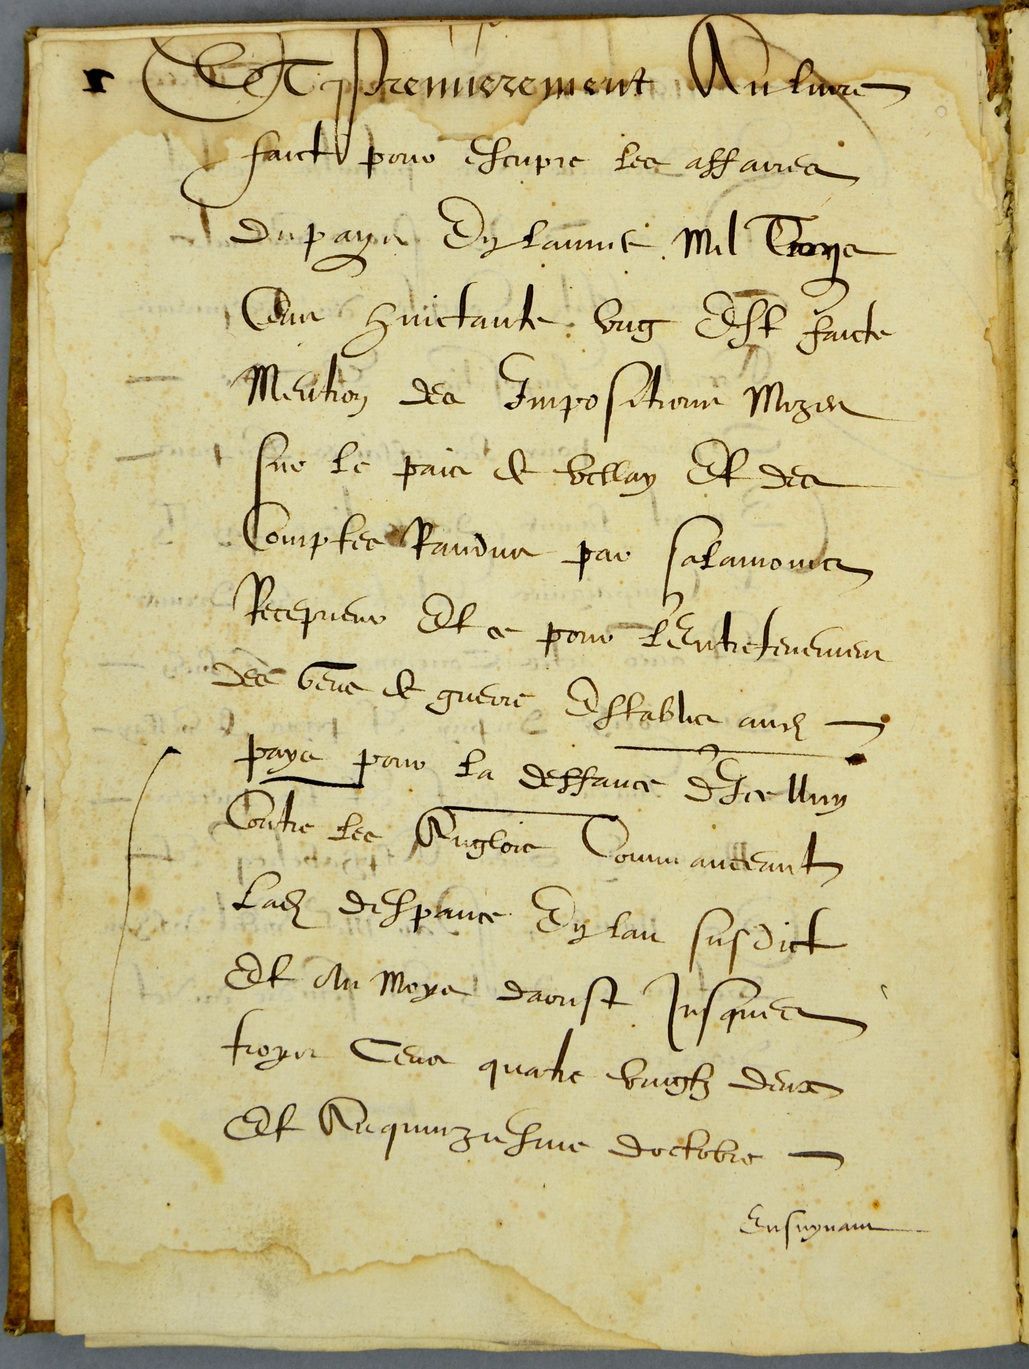 Et Premierement Au livre
faict pour escripre les affaires
du pays En lannee mil Troys
Cens huictante ung Est faicte
Mention des Impositions Mizes
sur le païs de vellay Et des
Comptes Randus par salamones
Recepveur Et ce pour l'Entretenement
des gens de guerre Establis aud
pays pour la deffance d'Icelluy
Contre les Anglois Commanceant
Lad despance En lan susdict
Et Au moys daoust Jusques
troys Cens quatre vingtz deux
Et Au quinziesme doctobre
Ensuyvant